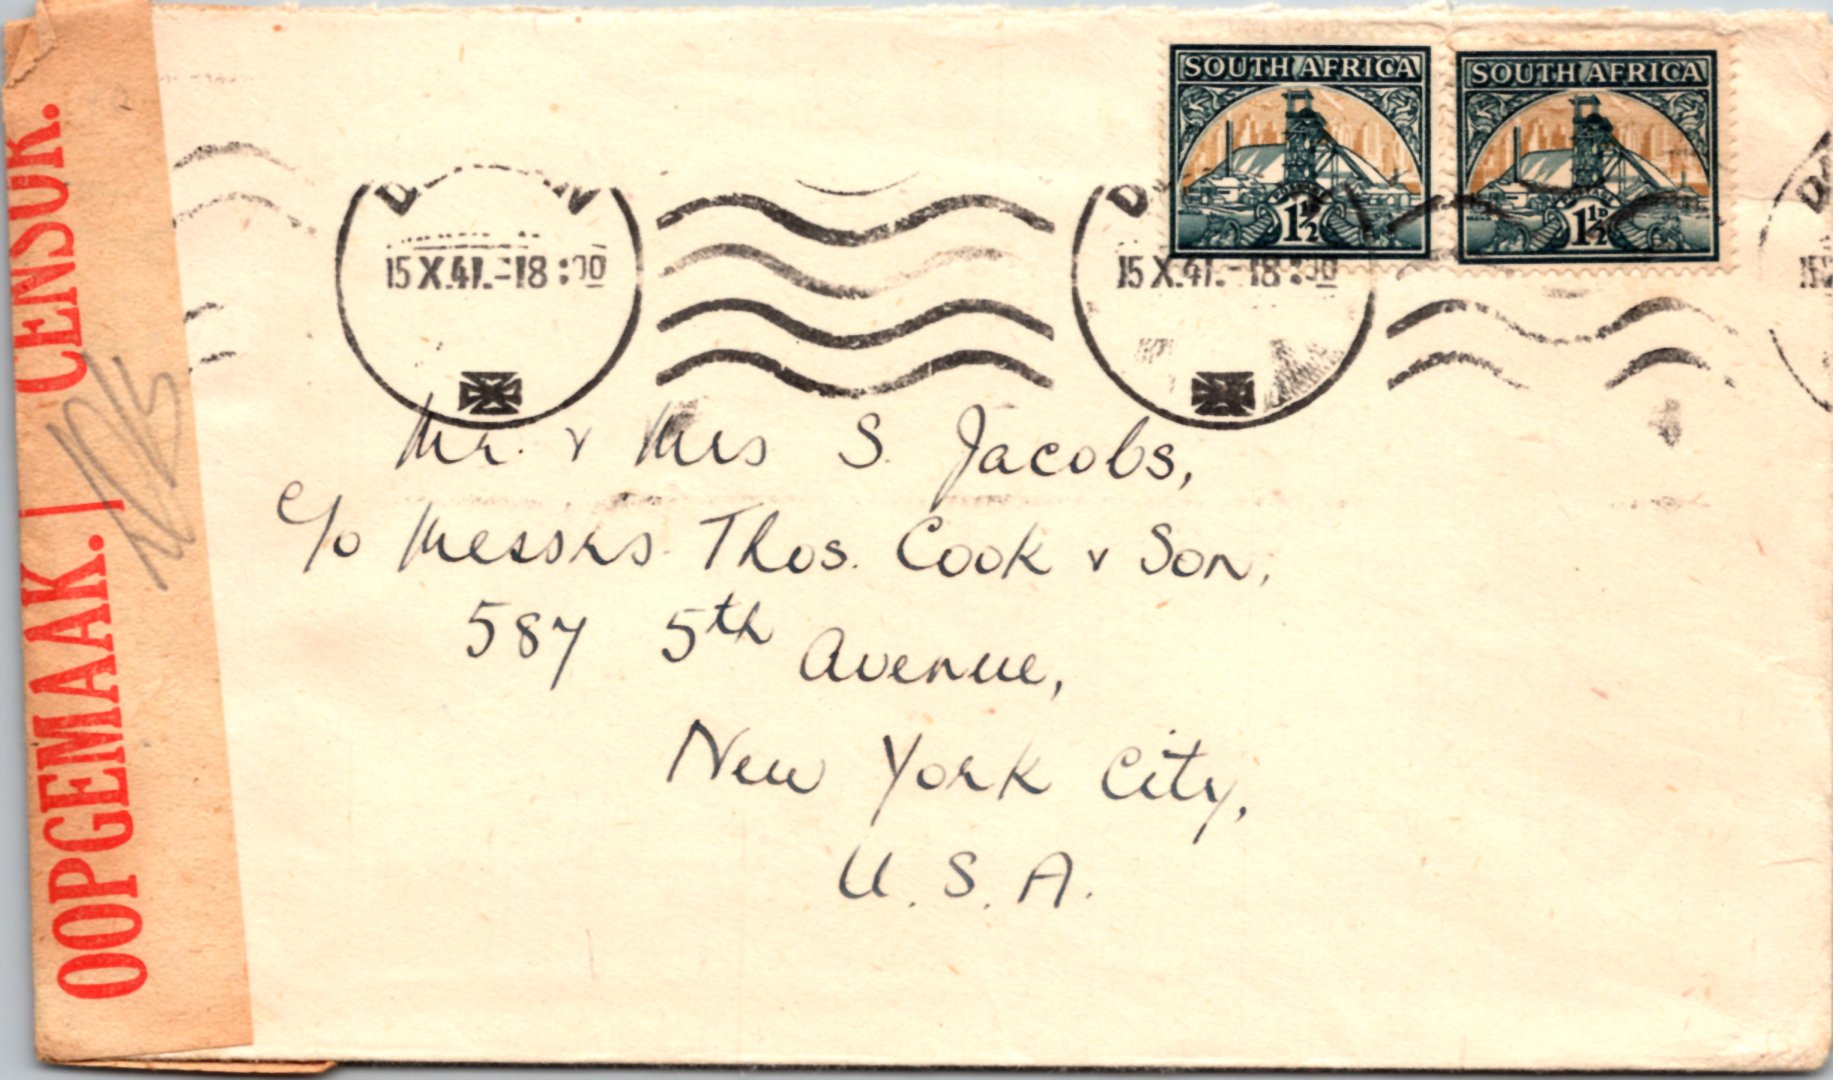 OOPGEMAAK. | CENSOR.
SOUTH AFRICA
1½D
SOUTH AFRICA
1½D
15 X.41.-18:00
15 X.41.-18:00
Mr. & Mrs S. Jacobs,
c/o Messrs. Thos. Cook & Son,
587 5th Avenue,
New York City,
U.S.A.